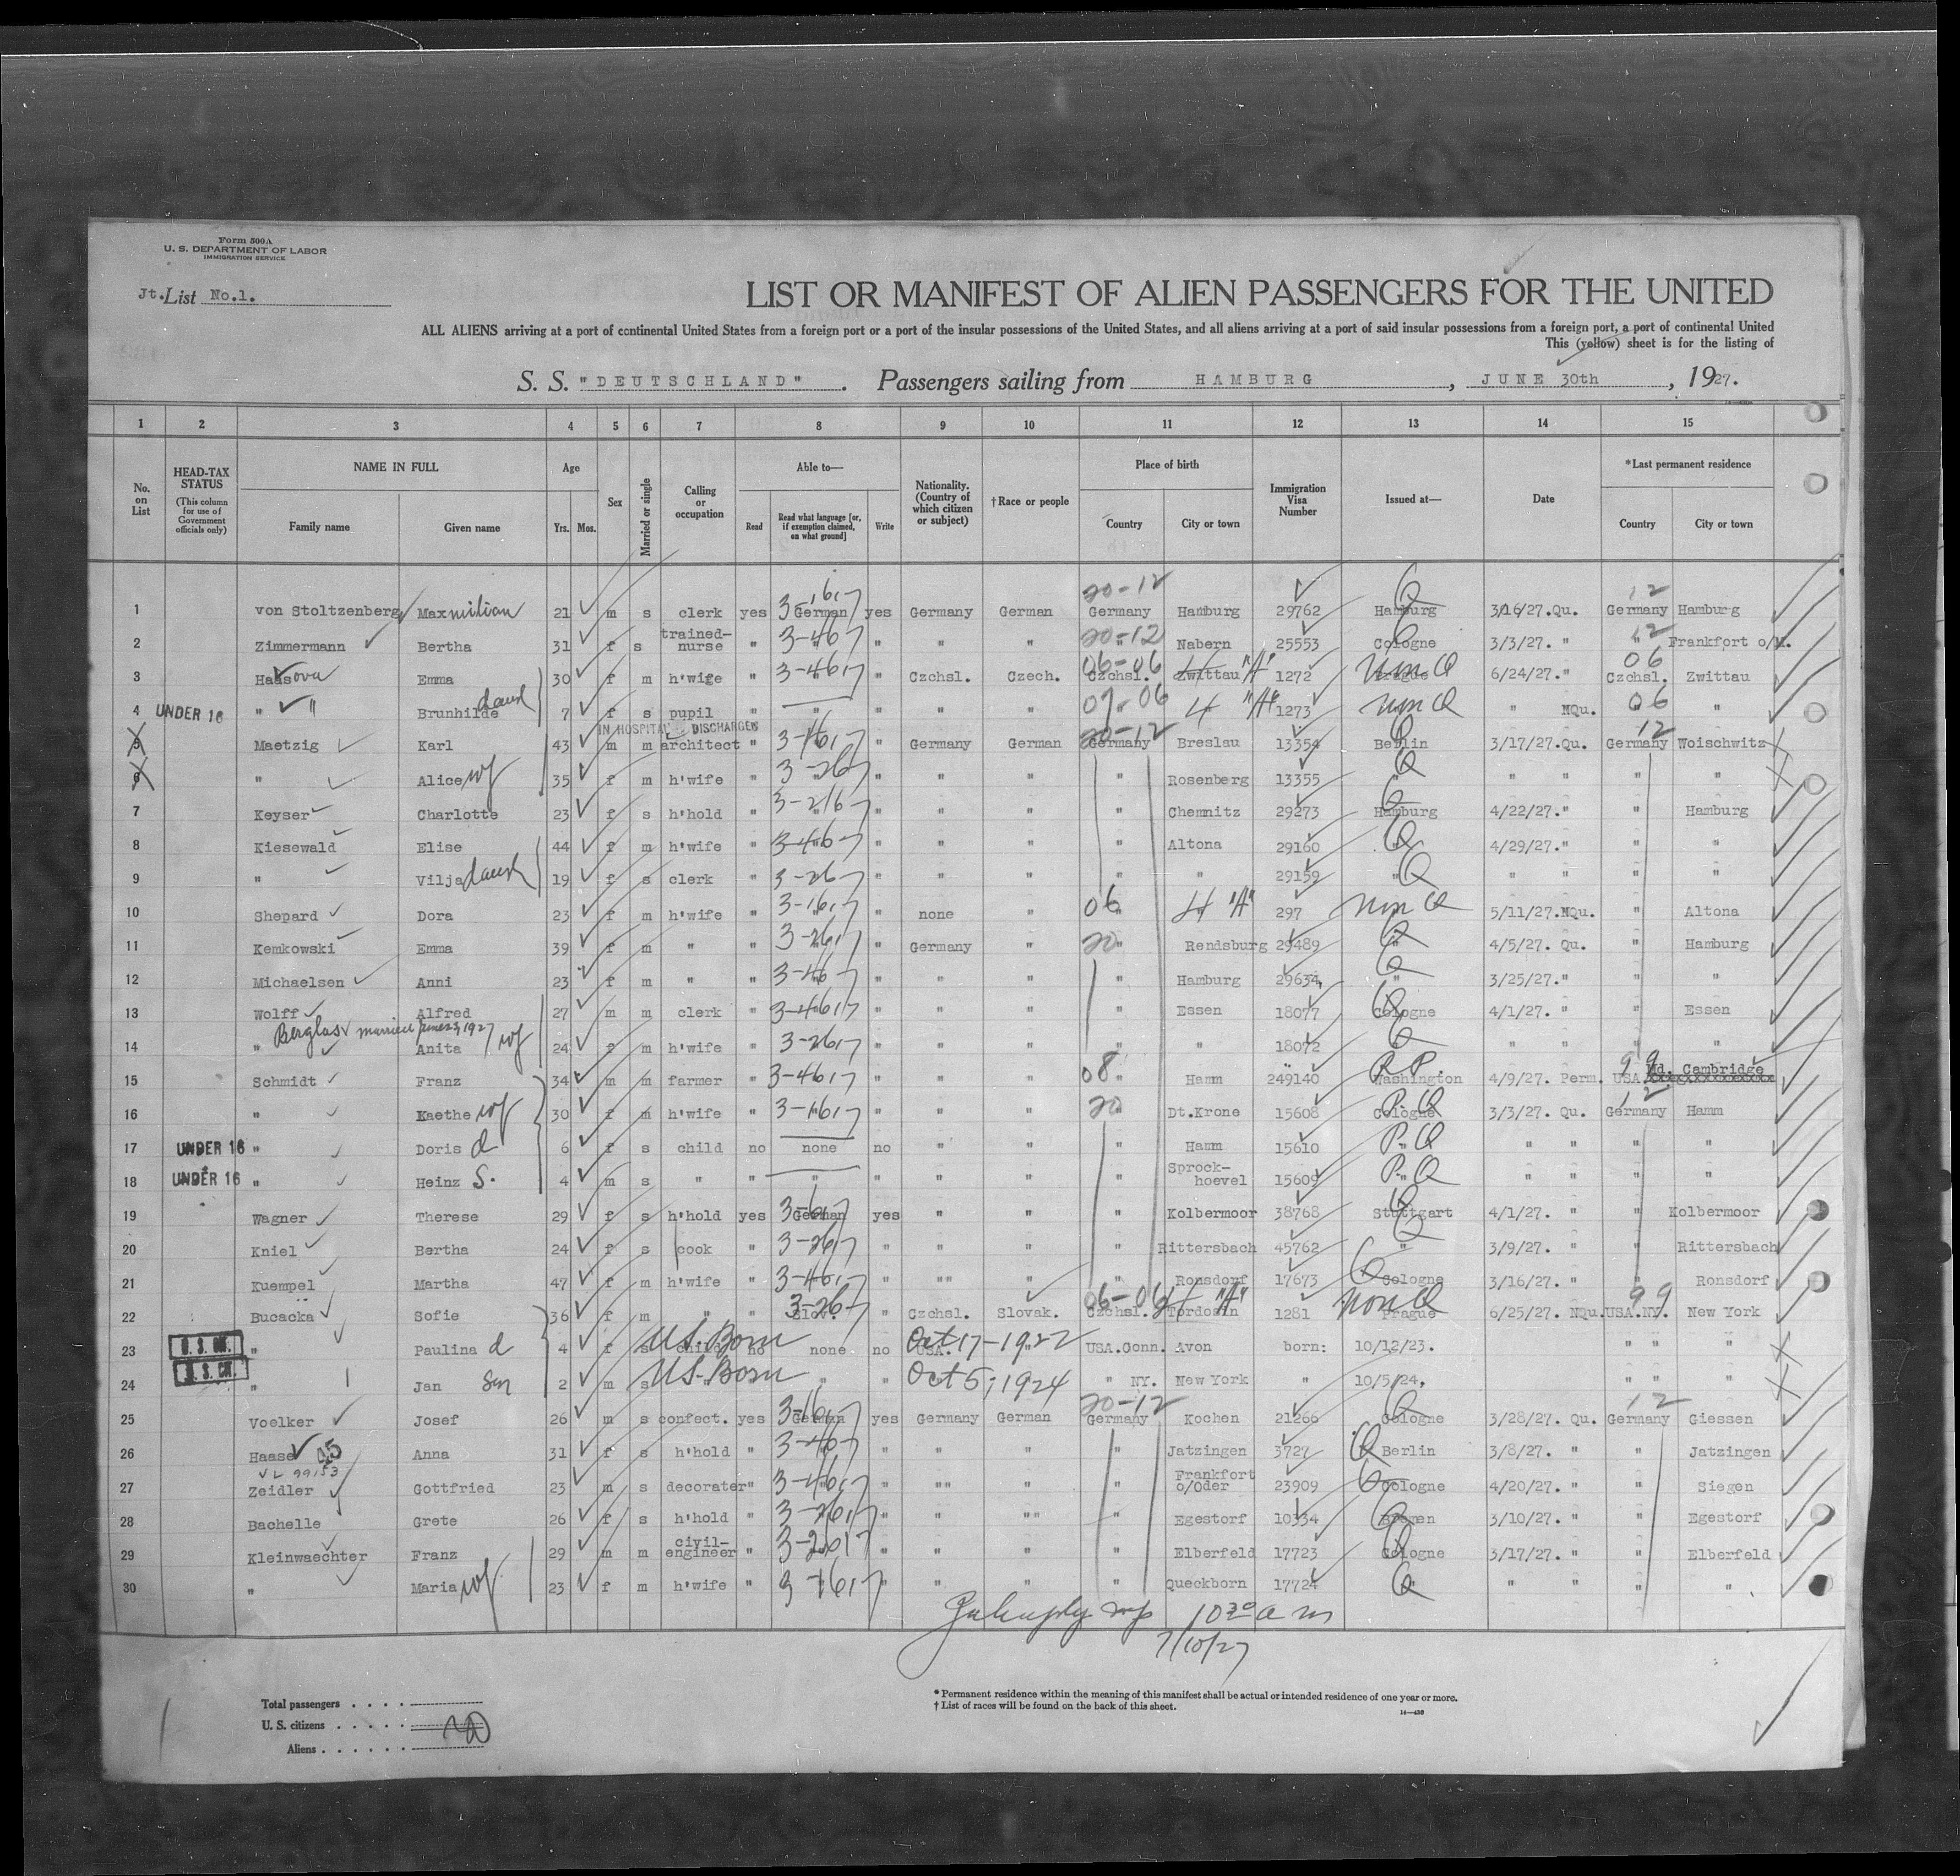 Form 500A
U. S. DEPARTMENT OF LABOR
IMMIGRATION SERVICE
Jt. List No.1.
LIST OR MANIFEST OF ALIEN PASSENGERS FOR THE UNITED
ALL ALIENS arriving at a port of continental United States from a foreign port or a port of the insular possessions of the United States, and all aliens arriving at a port of said insular possessions from a foreign port, a port of continental United
This (yellow) sheet is for the listing of
S. S. "DEUTSCHLAND" . Passengers sailing from HAMBURG , JUNE 30th , 1927.
1 2 3 4 5 6 7 8 9 10 11 12 13 14 15
No. on List
HEAD-TAX STATUS (This column for use of Government officials only)
NAME IN FULL Family name Given name
Age Yrs. Mos.
Sex
Married or single
Calling or occupation
Able to— Read Read what language [or, if exemption claimed, on what ground] Write
Nationality. (Country of which citizen or subject)
†Race or people
Place of birth Country City or town
Immigration Visa Number
Issued at—
Date
*Last permanent residence Country City or town
1 von Stoltzenberg Maxmilian 21 m s clerk yes German yes Germany German 20-12 Germany Hamburg 29762 Hamburg Q 3/16/27.Qu. 12 Germany Hamburg
2 Zimmermann Bertha 31 f s trained-nurse " 3-467 " " " 20-12 Nabern 25553 Cologne Q 3/3/27. " 12 " Frankfort o/M.
3 Haasova Emma 30 f m h'wife " 3-4617 " Czchsl. Czech. 06-06 Czchsl. Zwittau 4 "A" 1272 Prague Non Q 6/24/27." 06 Czchsl. Zwittau
4 UNDER 16 " " Brunhilde daush 7 f s pupil " " " 07-06 4 "A" 1273 Non Q " NQu. 06 "
IN HOSPITAL DISCHARGED
5 Maetzig Karl 43 m m architect " 3-1617 " Germany German 20-12 Germany Breslau 13354 Berlin Q 3/17/27.Qu. 12 Germany Woischwitz
6 " Alice wf 35 f m h'wife " 3-267 " " " " Rosenberg 13355 Q " " " "
7 Keyser Charlotte 23 f s h'hold " 3-2167 " " " " Chemnitz 29273 Hamburg Q 4/22/27." " Hamburg
8 Kiesewald Elise 44 f m h'wife " 3-467 " " " " Altona 29160 " Q 4/29/27." " "
9 " Vilja daush 19 f s clerk " 3-267 " " " " " 29159 " Q " " " "
10 Shepard Dora 23 f m h'wife " 3-1617 " none " 06 4 "A" 297 Non Q 5/11/27.NQu. " Altona
11 Kemkowski Emma 39 f m " " 3-2617 " Germany " 20 " Rendsburg 29489 Q 4/5/27. Qu. " Hamburg
12 Michaelsen Anni 23 f m " " 3-467 " " " " Hamburg 29634 " Q 3/25/27." " "
13 Wolff Alfred 27 m m clerk " 3-4617 " " " " Essen 18077 Cologne Q 4/1/27. " " Essen
Berglas married June 3, 1927
14 " Anita wf 24 f m h'wife " 3-2617 " " " " " 18072 Q " " " "
15 Schmidt Franz 34 m m farmer " 3-4617 " " " 08 " Hamm 249140 Washington R.P. 4/9/27. Perm. 99 USA. Md. Cambridge
16 " Kaethe wf 30 f m h'wife " 3-1617 " " " 20 " Dt.Krone 15608 Cologne P.Q 3/3/27. Qu. 12 Germany Hamm
17 UNDER 16 " Doris d 6 f s child no none no " " " Hamm 15610 P.Q " " " "
18 UNDER 16 " Heinz S. 4 m s " " " " " " " Sprock-hoevel 15609 P.Q " " " "
19 Wagner Therese 29 f s h'hold yes German yes " " " Kolbermoor 38768 Stuttgart Q 4/1/27. " " Kolbermoor
20 Kniel Bertha 24 f s cook " 3-2617 " " " " Rittersbach 45762 " Q 3/9/27. " " Rittersbach
21 Kuempel Martha 47 f m h'wife " 3-4617 " "" " " Ronsdorf 17673 Cologne Q 3/16/27. " " Ronsdorf
22 Bucacka Sofie 36 f m " " Slov. 3-267 " Czchsl. Slovak. 06-06 Czchsl. 4 "A" Tordosin 1281 Prague Non Q 6/25/27. NQu. 99 USA.NY. New York
23 U. S. CIT. " Paulina d 4 f s child no none no USA. " USA.Conn. Avon born: 10/12/23. " " "
US. Born Oct 17-1922
24 U. S. CIT. " Jan Son 2 m s " " " " NY. New York " 10/5/24. " " "
US. Born Oct 5, 1924
25 Voelker Josef 26 m s confect. yes German yes Germany German 20-12 Germany Kochen 21266 Cologne Q 3/28/27. Qu. 12 Germany Giessen
26 Haase Anna 31 f s h'hold " 3-467 " " " " Jatzingen 3727 Q Berlin 3/8/27. " " Jatzingen
VL 99153
27 Zeidler Gottfried 23 m s decorater " 3-4617 " "" " " Frankfort o/Oder 23909 Cologne Q 4/20/27. " " Siegen
28 Bachelle Grete 26 f s h'hold " 3-2617 " " "" " Egestorf 10334 Bremen Q 3/10/27. " " Egestorf
29 Kleinwaechter Franz 29 m m civil-engineer " 3-2617 " " " " Elberfeld 17723 Cologne Q 3/17/27. " " Elberfeld
30 " Maria wf 23 f m h'wife " 3-1617 " " " " Queckborn 17724 " Q " " " "
10 30 a m
7/10/27
Total passengers . . . .
U. S. citizens . . . . .
Aliens . . . . . .
* Permanent residence within the meaning of this manifest shall be actual or intended residence of one year or more.
† List of races will be found on the back of this sheet.
14—430